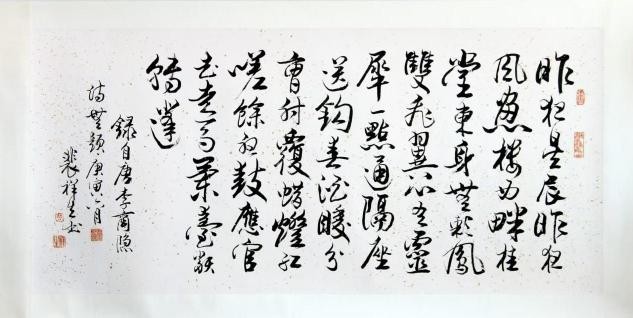 昨夜星辰昨夜
風画樓西畔桂
堂東身無彩鳳
雙飛翼心有靈
犀一點通隔座
送鈎春酒暖分
曹射覆蜡燈紅
嗟餘聽鼓應官
去走馬蘭臺類
轉蓬
錄自唐李商隱
詩無題庚寅六月
裴祥书